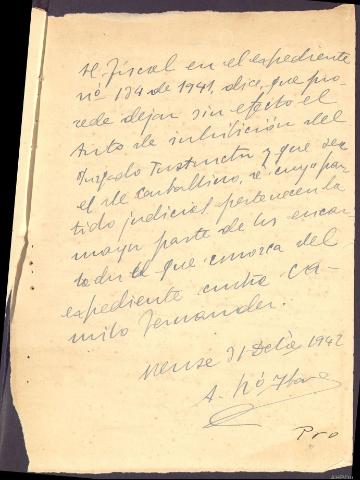 El Fiscal en el expediente
nº 124 de 1941, dice, que pro-
cede dejar sin efecto el
Auto de inhibición del
Juzgado Instructor y que sea
el de Carballino, a cuyo par-
tido judicial pertenecen la
mayor parte de los encar-
tados el que conozca del
expediente contra Ca-
milo Fernandez.
Orense 31 Dcbre 1942
A.
Pro